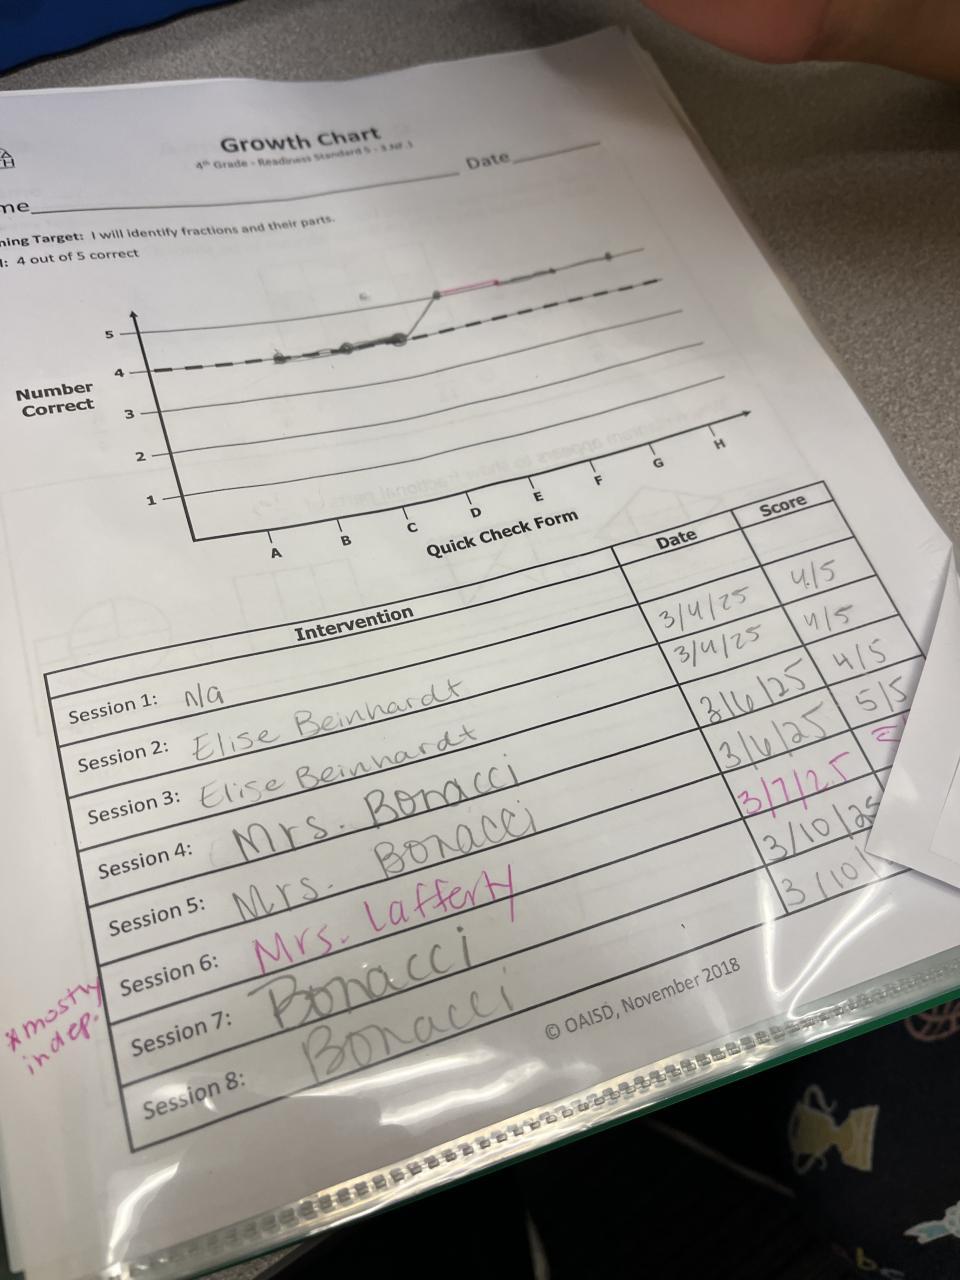 Growth Chart
4th Grade - Readiness Standard 5 - 3.NF.1
me Date
ning Target: I will identify fractions and their parts.
l: 4 out of 5 correct
5
4
Number
Correct
3
2
1
A B C D E F G H
Quick Check Form
Intervention Date Score
Session 1: N/a
Session 2: Elise Beinhardt 3/4/25 4/5
Session 3: Elise Beinhardt 3/4/25 4/5
Session 4: Mrs. Bonacci 3/6/25 4/5
Session 5: Mrs. Bonacci 3/6/25 5/5
Session 6: Mrs. Lafferty 3/7/25
*mostly
indep.
Session 7: Bonacci 3/10/25
Session 8: Bonacci 3/10/
© OAISD, November 2018